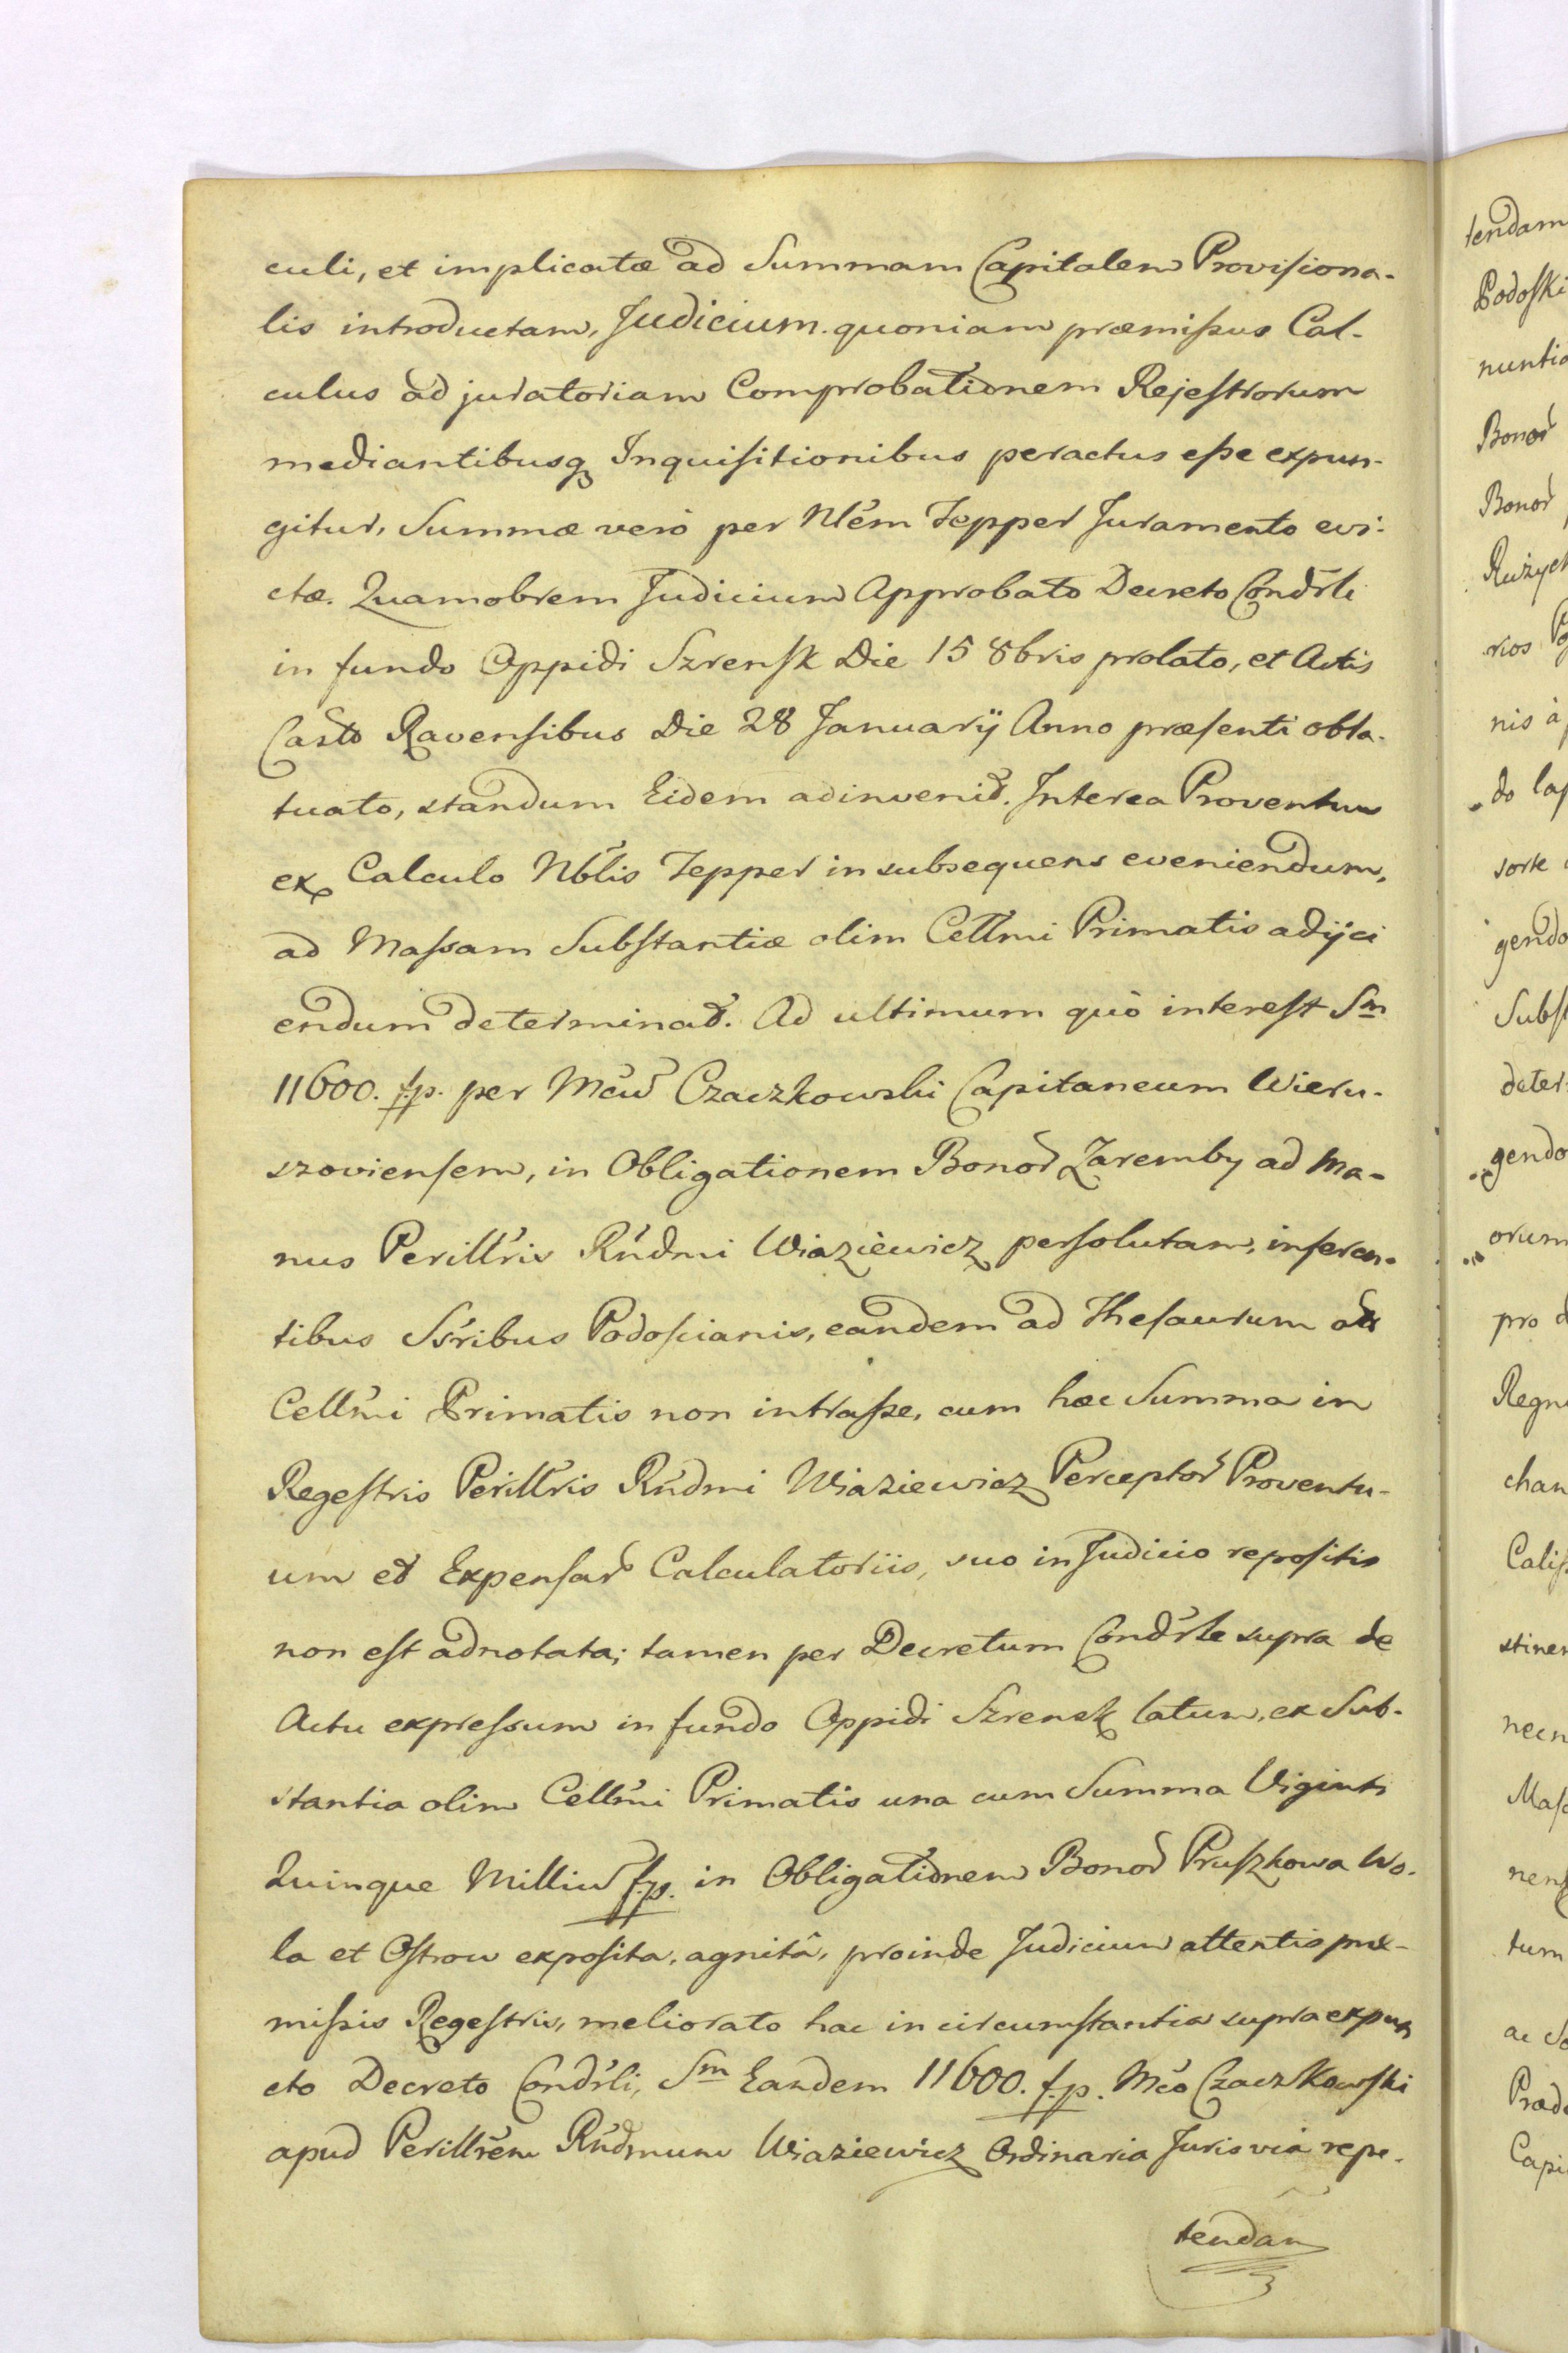 culi, et implicatæ ad Summam Capitalem Provisiona-
lis introductam, Judicium quoniam præmissus Cal-
culus ad juratoriam Comprobationem Rejestrorum
mediantibusq Inquisitionibus peractus esse expun-
gitur, Summæ verò per Nlem Tepper Juramento evi-
ctæ. Quamobrem Judicium Approbato Decreto Condrli
in fundo Oppidi Szrensk Die 15 8bris prolato, et Actis
Casto Ravensibus Die 28 Januarij Anno præsenti obla-
tuato, standum Eidem adinvenit. Interea Proventum
ex Calculo Nblis Tepper in subsequens eveniendum,
ad Massam Substantiæ olim Cellmi Primatis adijci
endum determinat. Ad ultimum quò interest Sm
11600. f.p. per Mcum Czaczkowski Capitaneum Wieru-
szoviensem, in Obligationem Bonor Zaremby ad Ma-
nus Perillris Rndmi Wiaziewicz persolutam, inferen-
tibus Ssribus Podoscianis, eandem ad Thesaurum
Cellmi Primatis non intrasse, cum hæc Summa in
Regestris Perillris Rndmi Wiaziewicz Perceptor Proventu-
um et Expensar Calculatoriis, suo in Judicio repositis
non est adnotata; tamen per Decretum Condrle supra de
Actu expressum in fundo Oppidi Szrensk latum, ex Sub-
stantia olim Cellmi Primatis una cum Summa Viginti
Quinque Millium f.p. in Obligationem Bonor Pruszkowa Wo-
la et Ostrow exposita, agnitâ, proinde Judicium attentis præ-
missis Regestris, meliorato hac in circumstantia supra expun
cto Decreto Condrli, Sm Eandem 11600. f.p. Mco Czaczkowski
apud Perillrem Rndmum Wiaziewicz Ordinaria Juris via repe-
tendam
tendam
Podoski
nuntia
Bonor
Bonor
Rużyck
rios
nis à
do
sorte
gendo
Subst
deter
gendo
orum
pro
Regn
chan
Calis
stinen
necn
Mas
nens
tum
ac
Præd
Capi